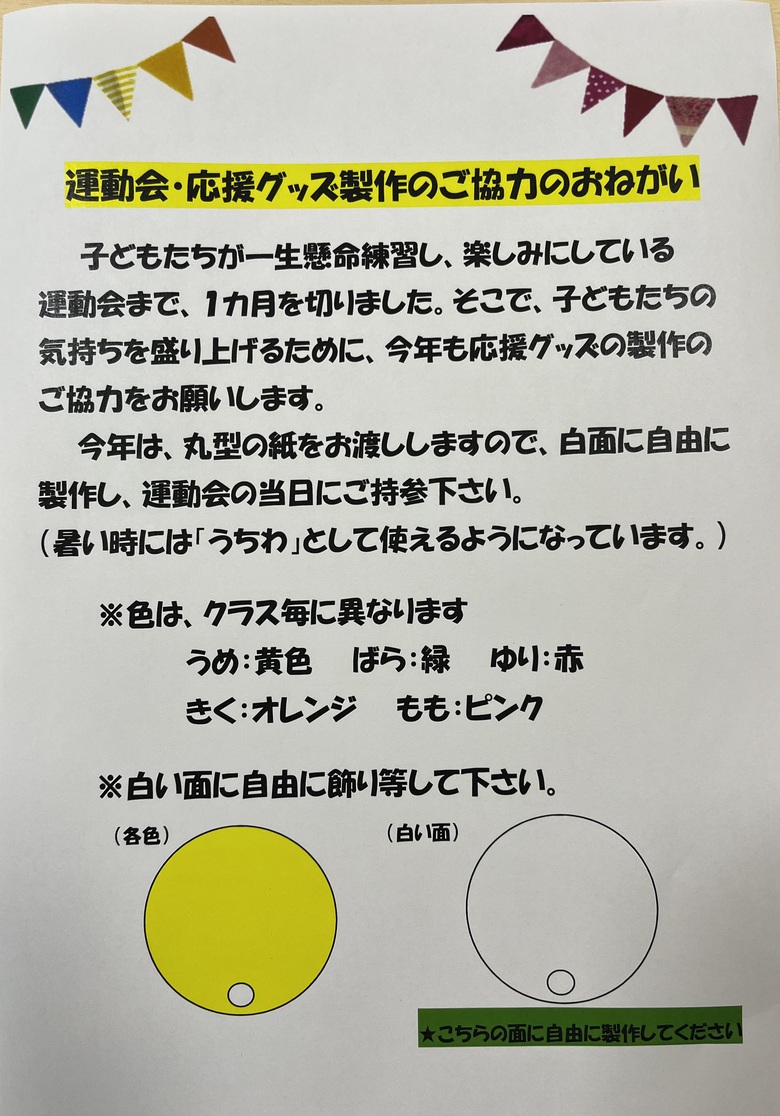 運動会・応援グッズ製作のご協力のおねがい
子どもたちが一生懸命練習し、楽しみにしている
運動会まで、1カ月を切りました。そこで、子どもたちの
気持ちを盛り上げるために、今年も応援グッズの製作の
ご協力をお願いします。
今年は、丸型の紙をお渡ししますので、白面に自由に
製作し、運動会の当日にご持参下さい。
（暑い時には「うちわ」として使えるようになっています。）
※色は、クラス毎に異なります
うめ：黄色　ばら：緑　ゆり：赤
きく：オレンジ　もも：ピンク
※白い面に自由に飾り等して下さい。
（各色）　（白い面）
★こちらの面に自由に製作してください